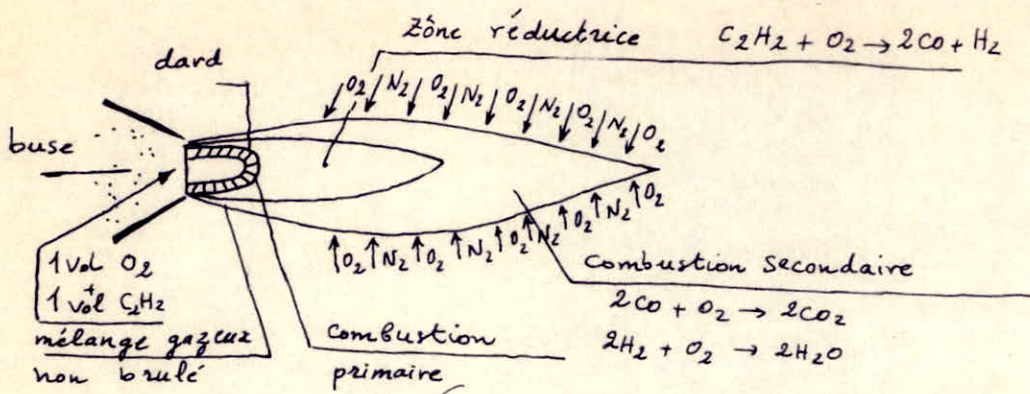 Zône réductrice C₂H₂ + O₂ → 2CO + H₂
dard
O₂ N₂ O₂ N₂ O₂ N₂ O₂ N₂ O₂
buse
O₂ N₂ O₂ N₂ O₂ N₂ O₂ N₂ O₂
1 vol O₂
+
1 vol C₂H₂
mélange gazeux
non brulé
combustion
primaire
Combustion Secondaire
2CO + O₂ → 2CO₂
2H₂ + O₂ → 2H₂O